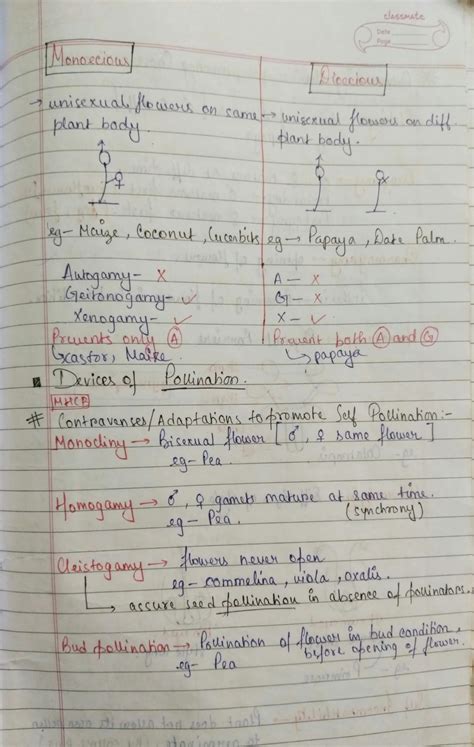 classmate
Date
Page
Monoecious
Dioecious
→ unisexual flowers on same plant body.
→ unisexual flowers on diff plant body.
eg- Maize, Coconut, Cucurbits
eg → Papaya, Date Palm.
Autogamy- x
Geitonogamy- ✓
Xenogamy- ✓
Prevents only Ⓐ
Castor, Maize.
A - x
G - x
X - ✓
Prevent both Ⓐ and Ⓖ
↳ papaya
Devices of Pollination.
MHCB
# Contravenses/Adaptations to promote Self Pollination:-
Monocliny → Bisexual flower [♂, ♀ same flower]
eg- Pea.
Homogamy → ♂, ♀ gamets mature at same time.
eg- Pea. (synchrony)
Cleistogamy → flowers never open
eg- commelina, viola, oxalis.
→ assure seed pollination in absence of pollinators.
Bud pollination → Pollination of flower in bud condition,
eg- Pea before opening of flower.